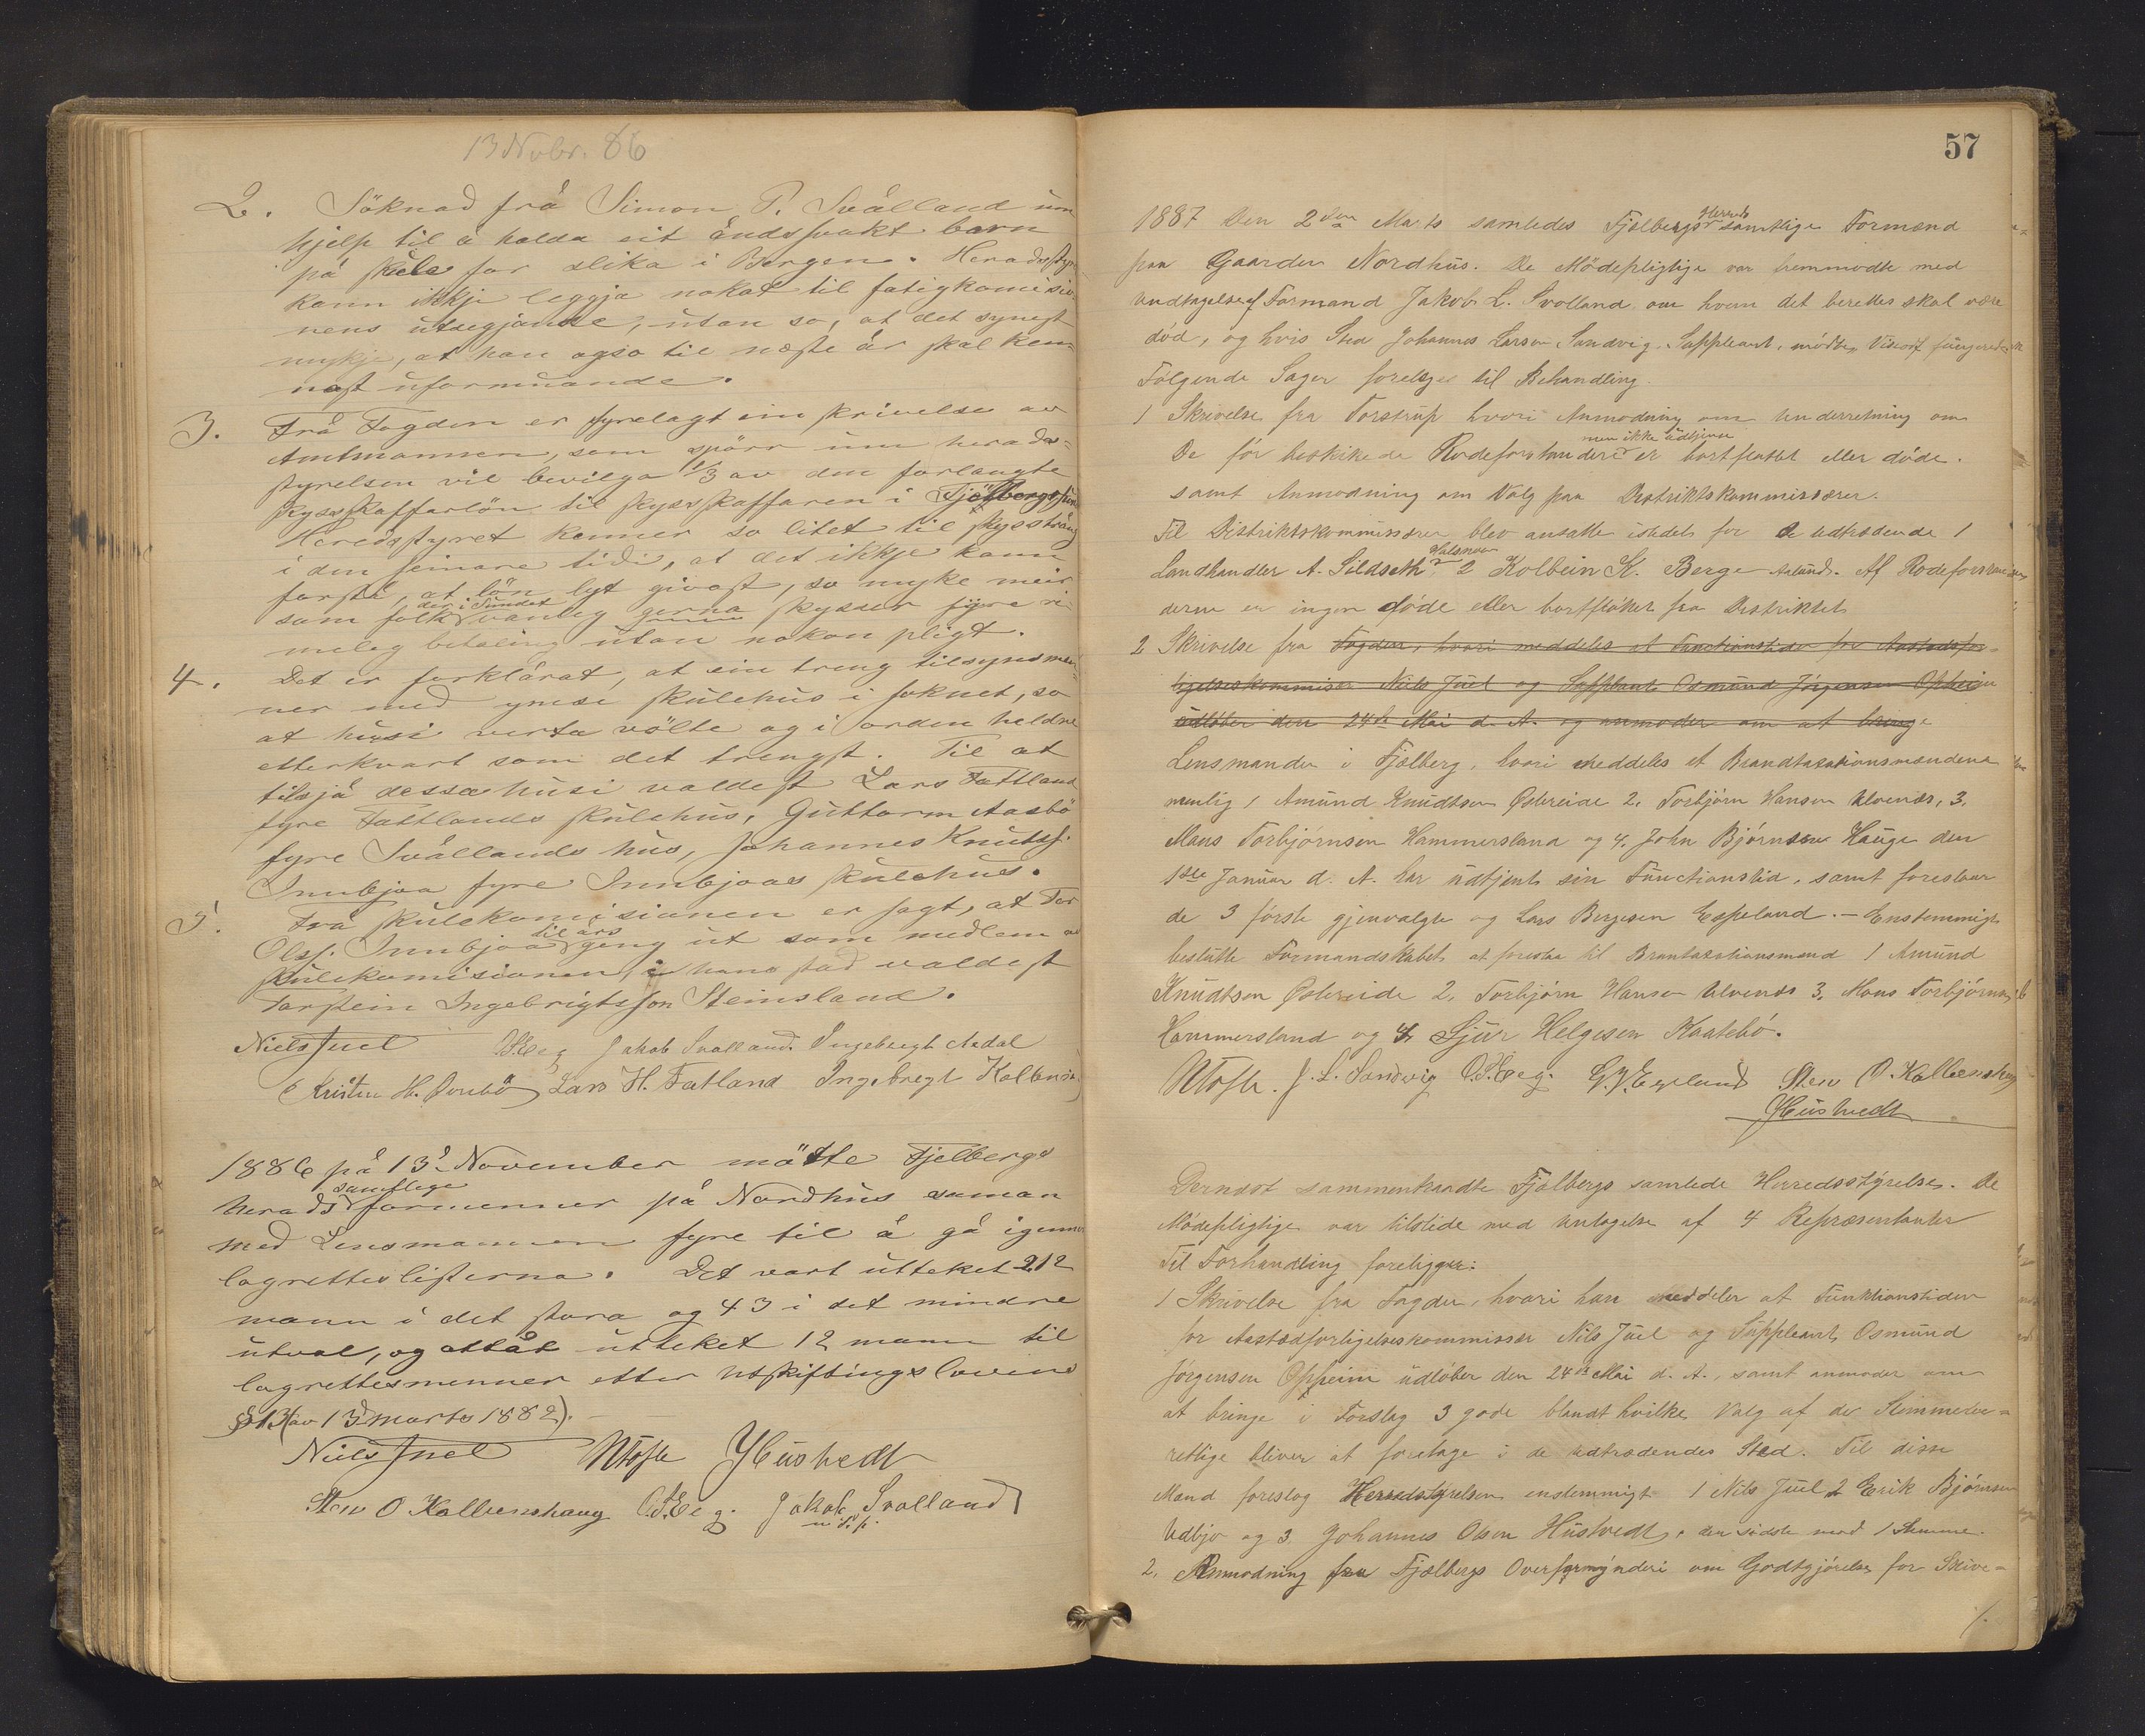 13 Nvbr. 86
2. Söknad frå Simon P. Svålland um
hjelp til å halda eit åndssvakt barn
på skule for slika i Bergen. Heradsstyre
kann ikkje leggja nokot til fatigkomisio-
nens utsegjande, utan so, at det synest
mykje, at han ogso til næste år skal ken-
nast uformuande.
3. Frå Fogden er fyrelagt ein skrivelse av
Amtmannen, som spörr um herads-
styrelsen vil bevilga 1/3 av den forlangte
skyssskaffarlön til skyssskaffaren i Fjelbergssund
Heredsstyret kenner so litet til skysstrång
i den seinare tidi, at det ikkje kann
forstå, at lön lyt givast, so myke meir
der i Sundet
som folk vanleg gerna skysser fyre ri-
meleg betaling utan nokon pligt.
4. Det er forklårat, at ein treng tilsynsmen-
ner med ymse skulehus i soknet, so
at husi verta völte og i orden heldne
etterkvart som det trengst. Til at
tilsjå dessa husi valdest Lars Fattland
fyre Fattlands skulehus, Guttorm Aasbö
fyre Svållands hus, Johannes Knutss.
Innbjoa fyre Innbjoas skulehus.
5. Frå skulekomisionen er sagt, at Tor
til års
Olss. Innbjoa geng ut som medlem av
skulekomisionen, i hans stad valdest
Torstein Ingebrigtsson Steinsland.
Niels Juel O.S.Eeg Jakob Svolland. Ingebregt Aadal
Kristen H. Lars H. Fatland Ingebregt Kolbenss.
1886 på 13. November mötte Fjelbergs
samtlege
herads formenner på Nordhus saman
med Lensmannen fyre til å gå igennem
lagretteslisterna. Det vart utteket 212
mann i det stora og 43 i det mindre
utval, og attåt utteket 12 mann til
lagrettesmenner etter Utskiftingslovens
§ 13 (av 13d marts 1882).
Niels Juel NTofte YHüstvedt
Sten O Kolbenshaug O.S.Eeg. Jakob Svolland
m. f. p.
57
Herreds
1887 Den 2den Marts samledes Fjelbergs samtlige Formænd
paa Gaarden Nordhus. De Mödepligtige var fremmødte med
Undtagelse af Formand Jakob L. Svolland, om hvem det berettes skal være
död, og hvis Sted Johannes Larsen Sandvig, Suppleant, mödte. Viceof. fungerede
Følgende Sager forelages til Behandling.
1 Skrivelse fra Torstrup hvori Anmodning om Underretning om
men ikke udtjente
De för beskikkede Rodeforstandere er bortflyttet eller döde.
samt Anmodning om Valg paa Distriktskommissærer.
Til Distriktskommissærer blev ansatte istedet for de Udtrædende 1
Halsnøen
Landhandler A. Sildseth 2 Kolbein K. Berge Ølund. Af Rodeforstan
derne er ingen døde eller bortflöttet fra Distriktet
2 Skrivelse fra Fogden, hvori meddeles at Functionstiden for Aastedsfor-
ligelseskommisær Niels Juel og Suppleant Osmund Jörgensen Opheim
udlöber den 24de Mai d. A. og anmoder om at bringe
Lensmanden i Fjelberg, hvori meddeles at Brandtaxationsmændene
nemlig 1 Amund Knudtsen Østereide 2. Torbjörn Hansen Ulvenæs, 3.
Mons Torbjörnsen Hammersland og 4. John Björnsen Hauge den
1ste Januar d. A. har udtjent sin Functionstid, samt foreslaar
de 3 förste gjenvalgte og Lars Bergesen Espeland. – Enstemmigt
besluttede Formandskabet at foreslaa til Brantaxationsmænd 1 Amund
Knudtsen Østereide 2. Torbjörn Hansen Ulvenæs 3. Mons Torbjörnsen
Hammersland og 4. Sjur Helgesen Kaatabö.
NTofte. J. L. Sandvig O.S.Eeg. G.V.Egeland Sten O. Kolbenshaug
YHüstvedt
Dernæst sammentraadte Fjelbergs samlede Herredsstyrelse. De
Mödepligtige var tilstede med Untagelse af 4 Repræsentanter
Til Forhandling foreligger:
1 Skrivelse fra Fogden, hvori han meddeler at Funktionstiden
for Aastedforligelseskommissær Nils Juel og Suppleant Osmund
Jörgensen Oppeim udlöber den 24de Mai d. A., samt anmoder om
at bringe i Forslag 3 gode blandt hvilke Valg af de Stemmebe-
rettige bliver at foretage i de Udtrædendes Sted. Til disse
Mænd foreslog Herredsstyrelsen enstemmigt 1 Nils Juel 2 Erik Björnsen
Udbjo og 3. Johannes Olsen Hustvedt, den sidste med 1 Stemme.
2. Anmodning fra Fjelbergs Overformynderi om Godtgjörelse for Skive-
/.